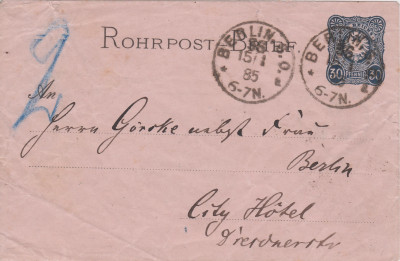 2
ROHRPOST-BRIEF
BERLIN S.O.
15/1
85
6-7N.
BERLIN
6-7N.
30 PFENNIG 30
An
Herrn Görcke nebst Frau
Berlin
City Hôtel
Dresdnerstr